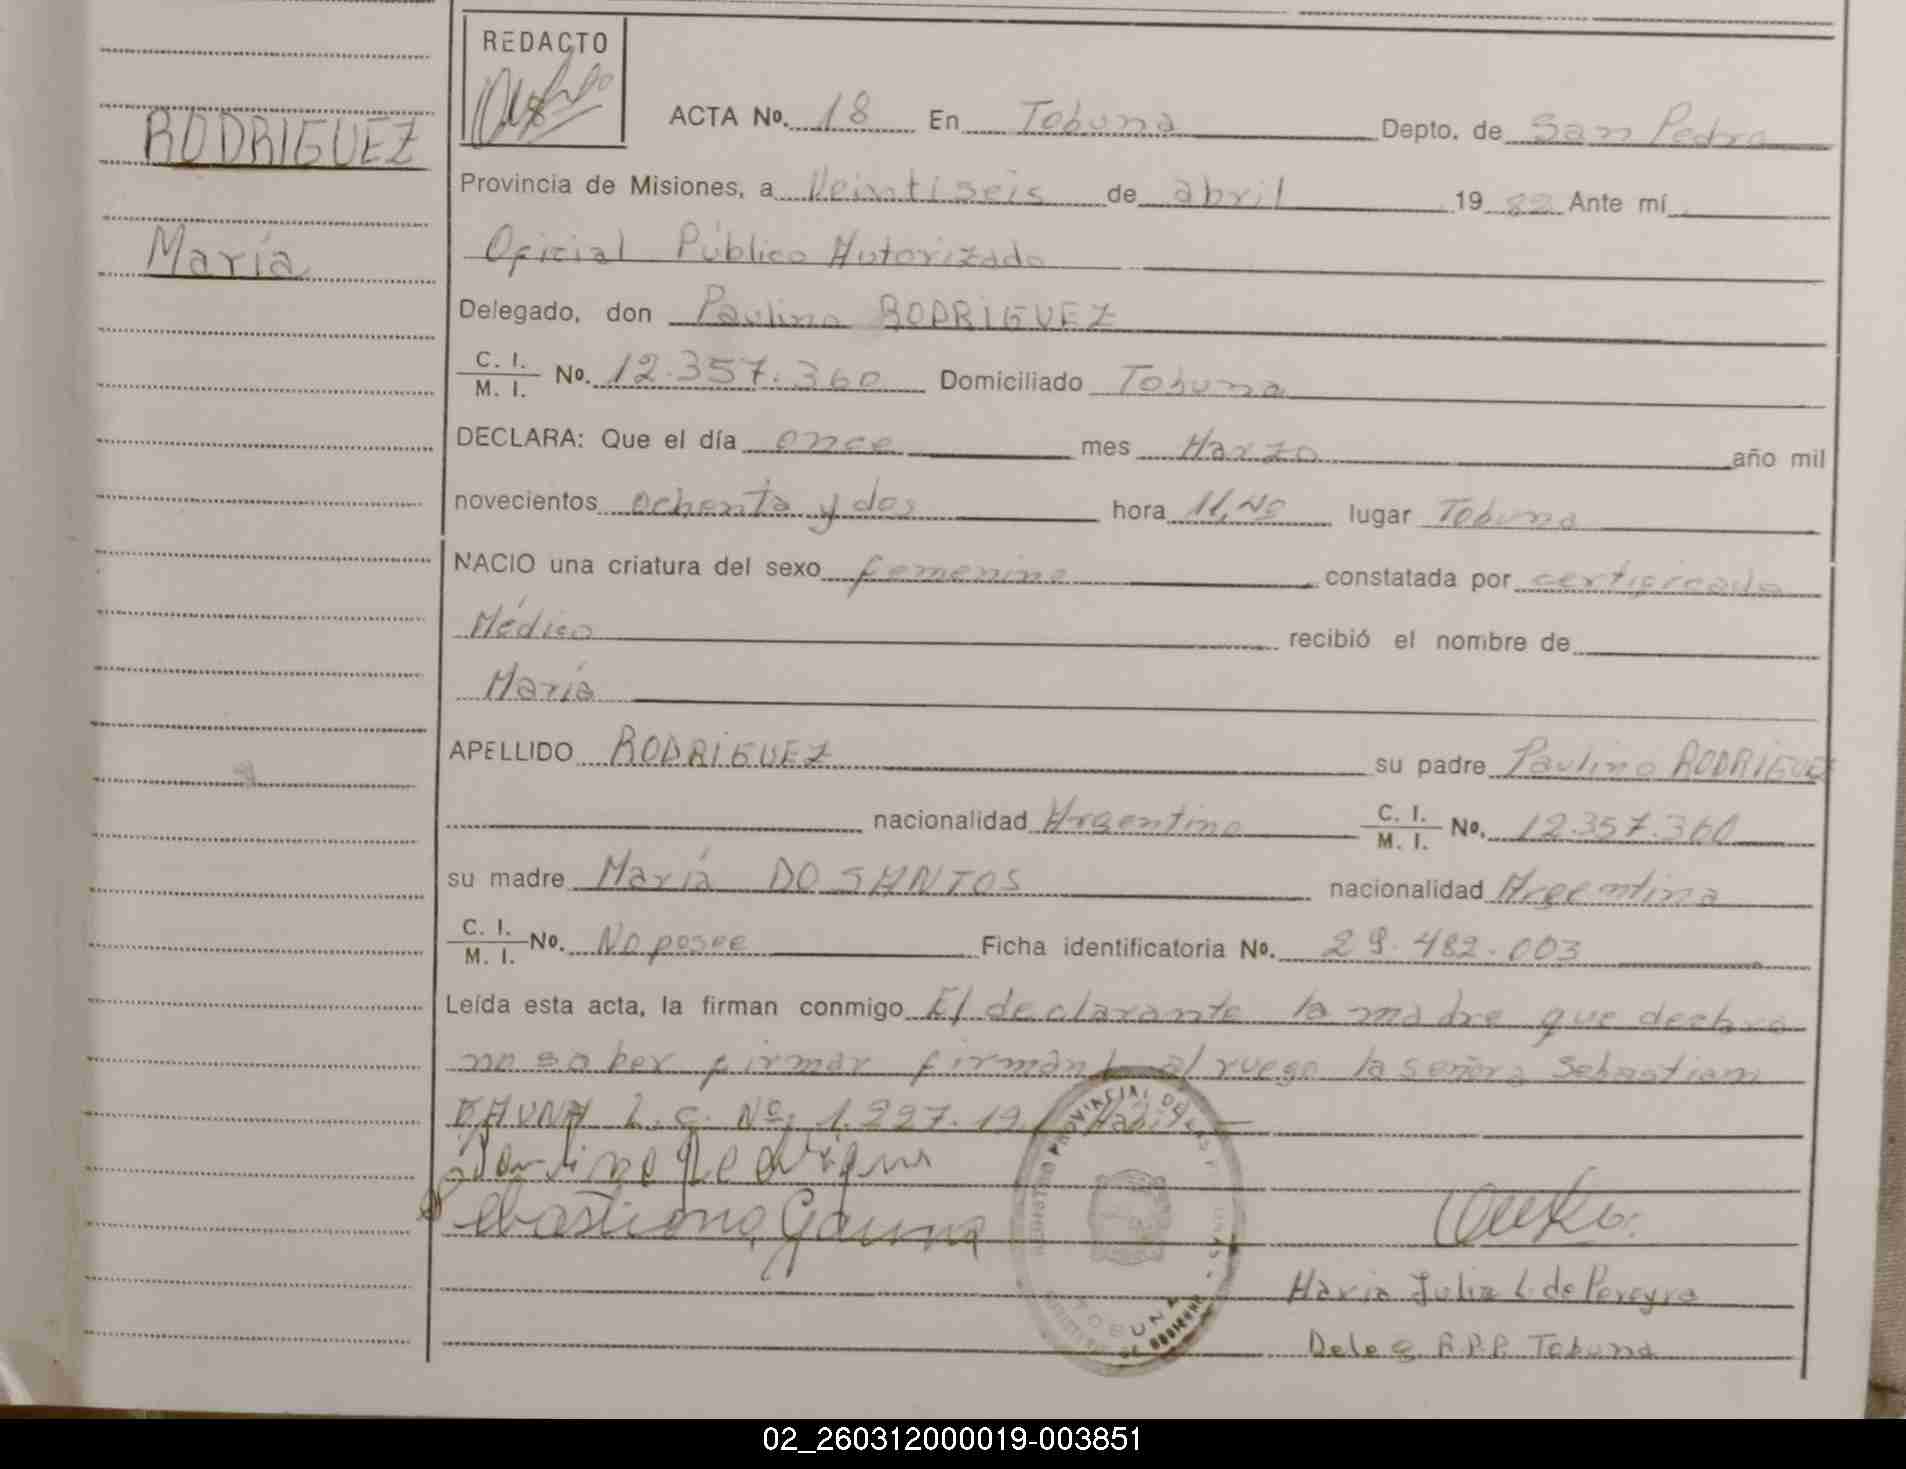 REDACTO
RODRIGUEZ
María
ACTA No. 18 En Tobuna Depto. de San Pedro
Provincia de Misiones, a Veintiseis de abril 19 82 Ante mí
Oficial Público Autorizado
Delegado, don Paulino RODRIGUEZ
C. I. / M. I. No. 12.357.360 Domiciliado Tobuna
DECLARA: Que el día once mes Marzo año mil
novecientos ochenta y dos hora 11,40 lugar Tobuna
NACIO una criatura del sexo femenino constatada por certificado
Médico recibió el nombre de
María
APELLIDO RODRIGUEZ su padre Paulino RODRIGUEZ
nacionalidad Argentino C. I. / M. I. No. 12.357.360
su madre María DO SANTOS nacionalidad Argentina
C. I. / M. I. No. No posee Ficha identificatoria No. 29.482.003
Leída esta acta, la firman conmigo El declarante la madre que declara
no saber firmar firman al ruego la señora Sebastiana
GAUNA L.C. Nº. 1.227.19
Sebastiana Gauna
REGISTRO PROVINCIAL DE LAS PERSONAS
TOBUNA
MINISTERIO DE GOBIERNO
Maria Julia L de Pereyra
Deleg R.P.P. Tobuna
02_260312000019-003851